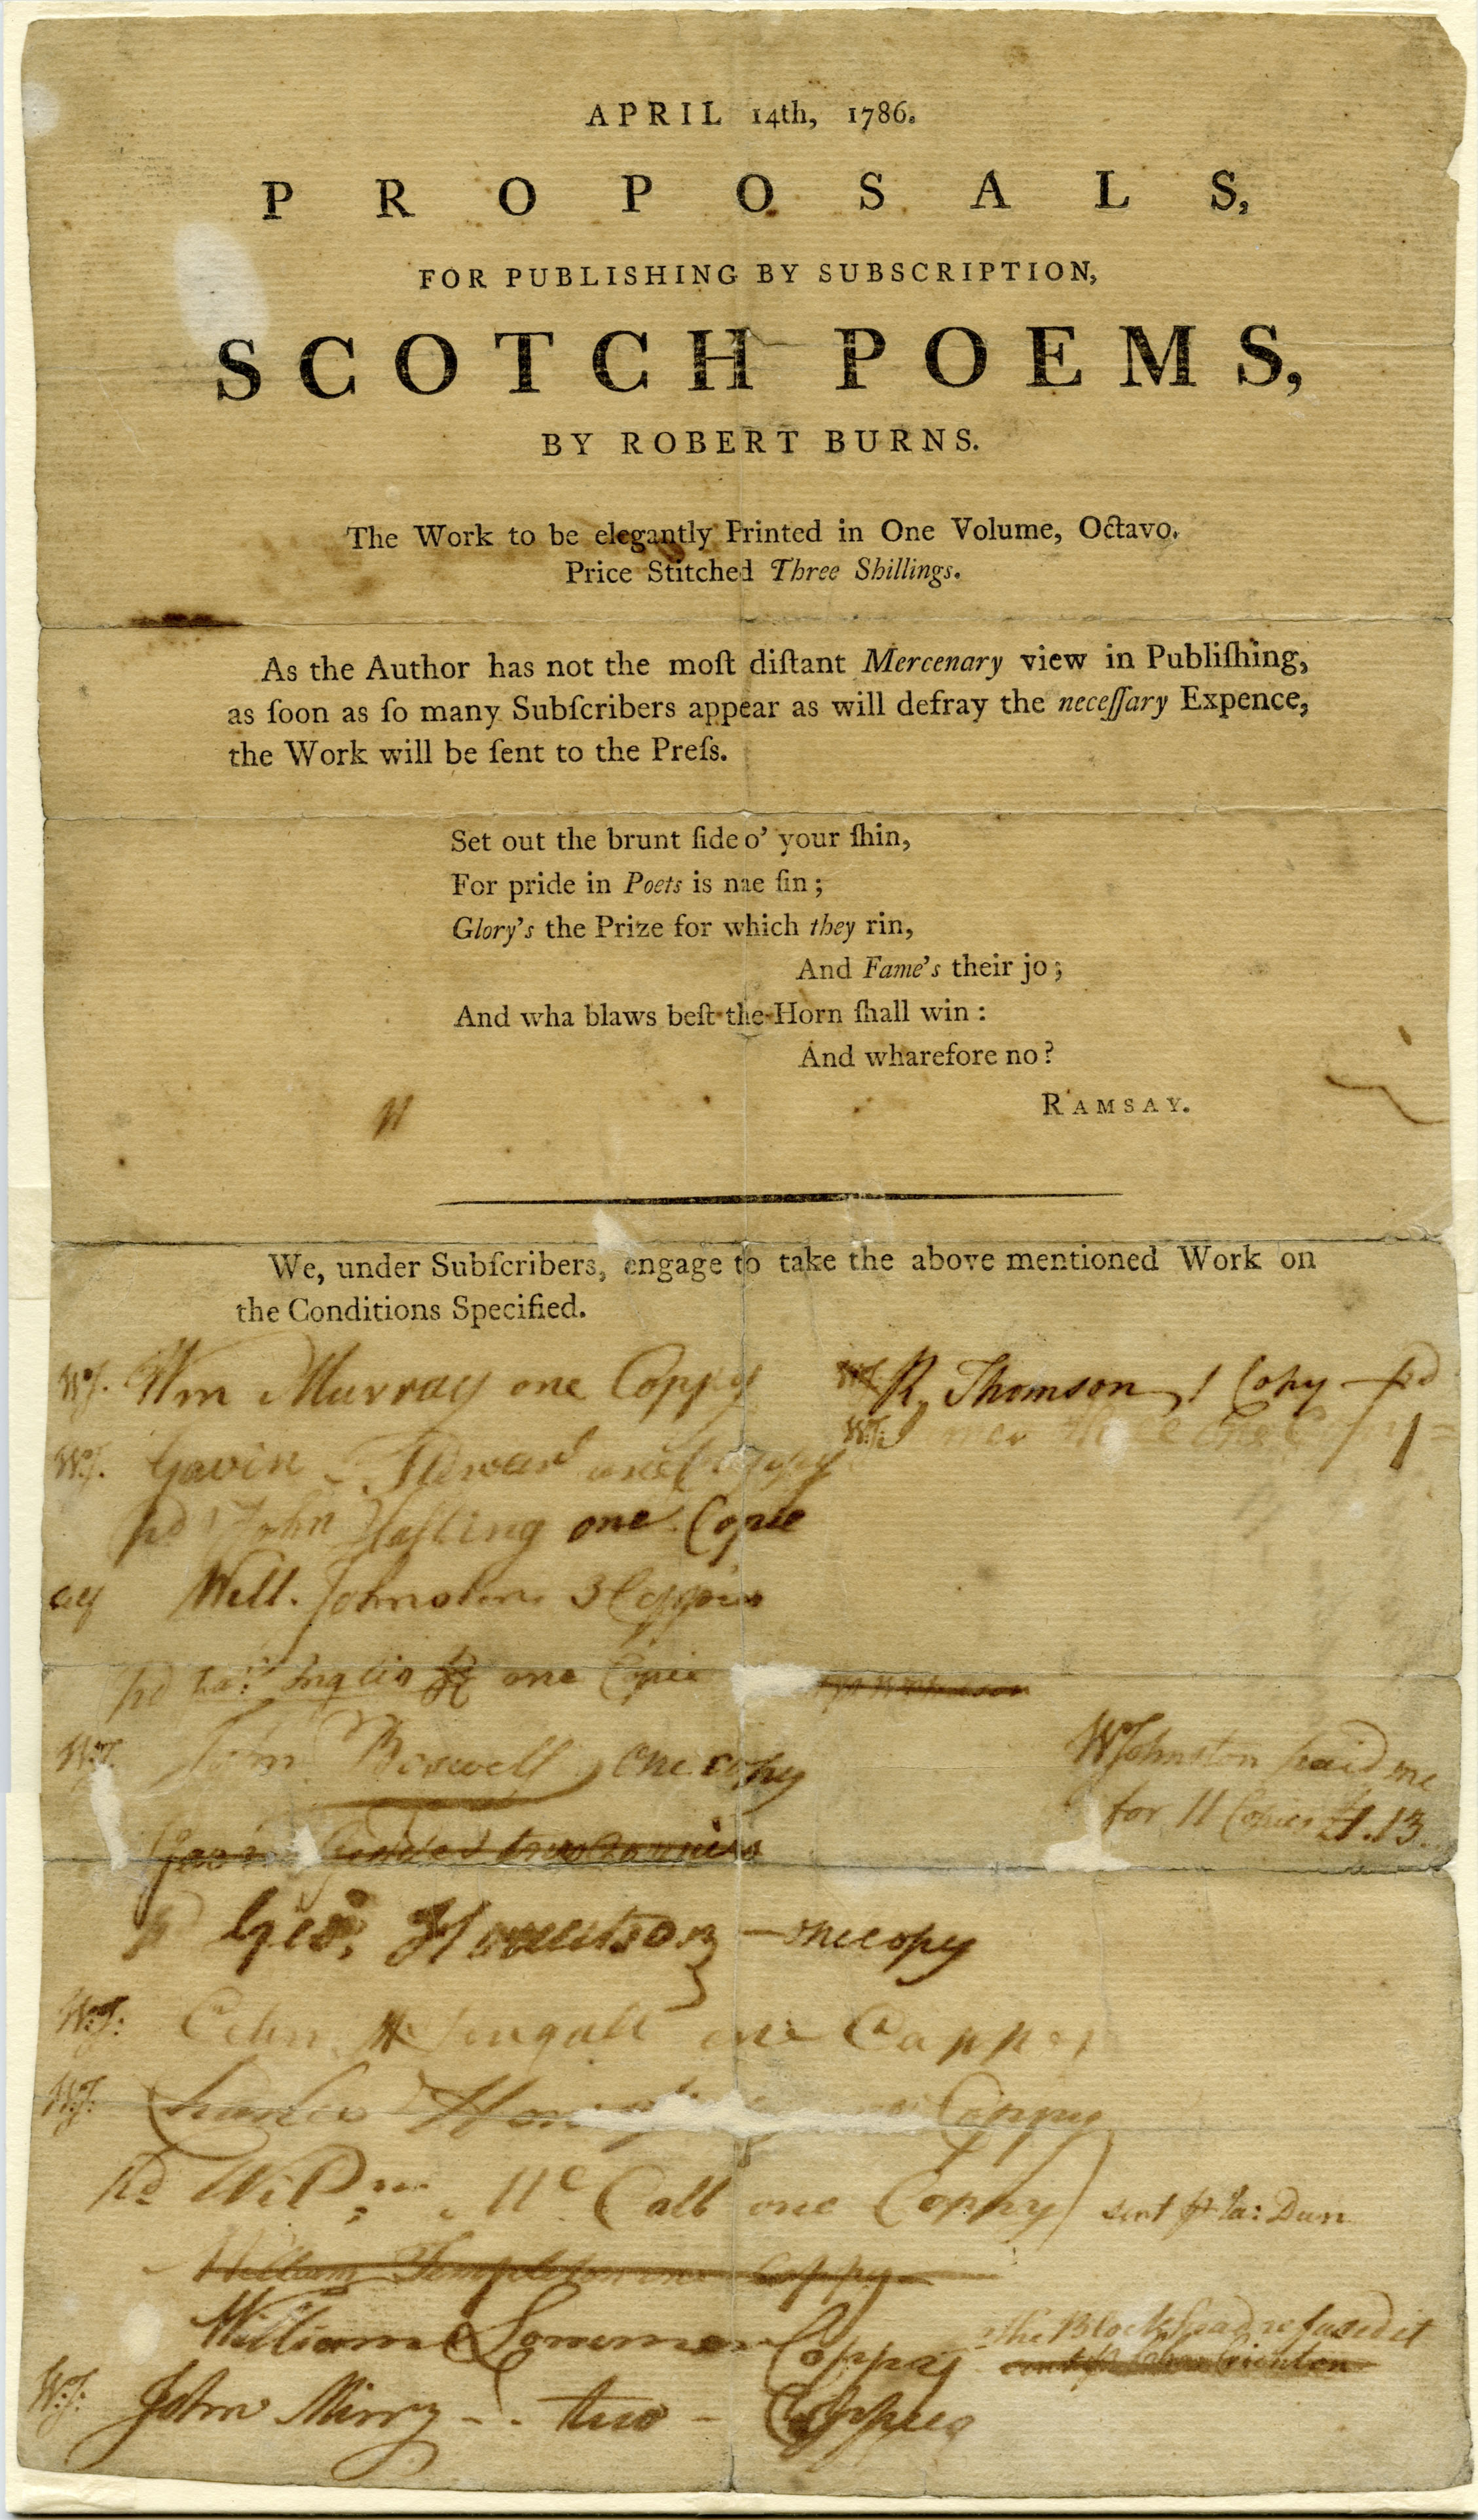 APRIL 14th, 1786.
PROPOSALS,
FOR PUBLISHING BY SUBSCRIPTION,
SCOTCH POEMS,
BY ROBERT BURNS.
The Work to be elegantly Printed in One Volume, Octavo.
Price Stitched Three Shillings.
As the Author has not the moſt diſtant Mercenary view in Publiſhing,
as ſoon as ſo many Subſcribers appear as will defray the neceſſary Expence,
the Work will be ſent to the Preſs.
Set out the brunt ſide o' your ſhin,
For pride in Poets is nae ſin;
Glory's the Prize for which they rin,
And Fame's their jo;
And wha blaws beſt the Horn ſhall win:
And wharefore no?
RAMSAY.
We, under Subſcribers, engage to take the above mentioned Work on
the Conditions Specified.
WJ. Wm Murray one Coppy
R. Thomson 1 Copy pd
WJ. Gavin one Coppy
pd John one Copie
Will. Johnston 3 Coppies
pd one Copie
WJ. John Boswell one copy
WJohnston paid me
for 11 Copies £1.13.
Geo. one copy
WJ:
WJ: Charles Coppy
pd Willm McCall one Coppy sent pr Ja: Dun
William Coppy the Blockhead refused it
WJ: John Mirry two Coppies